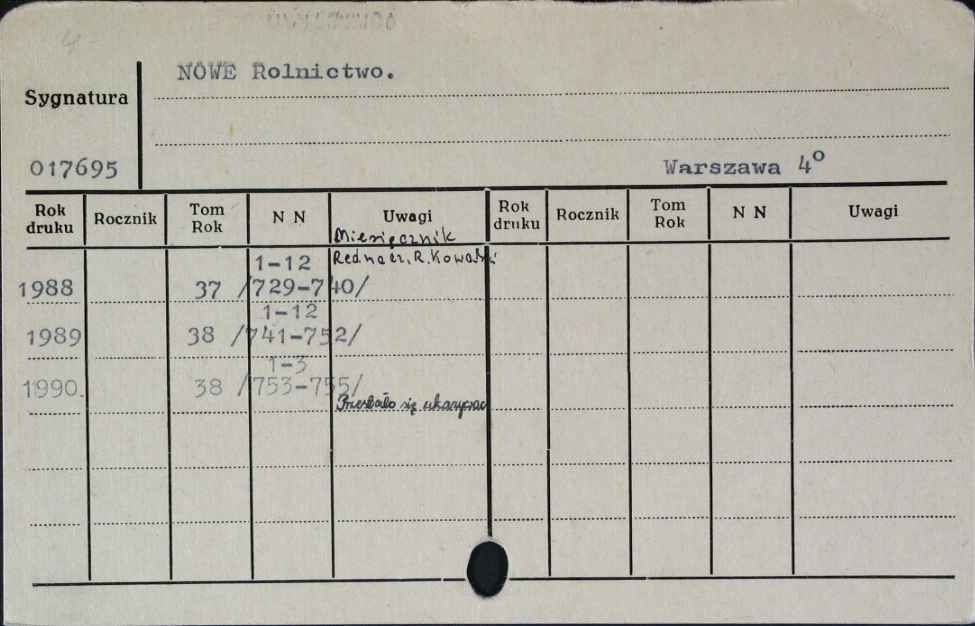 4
NOWE Rolnictwo.
Sygnatura
017695
Warszawa 4°
Rok druku Rocznik Tom Rok N N Uwagi Rok druku Rocznik Tom Rok N N Uwagi
Miesięcznik
1-12 Red nacz. R. Kowalski
1988 37 /729-740/
1-12
1989 38 /741-752/
1-3
1990. 38 /753-755/
Przestało się ukazywać